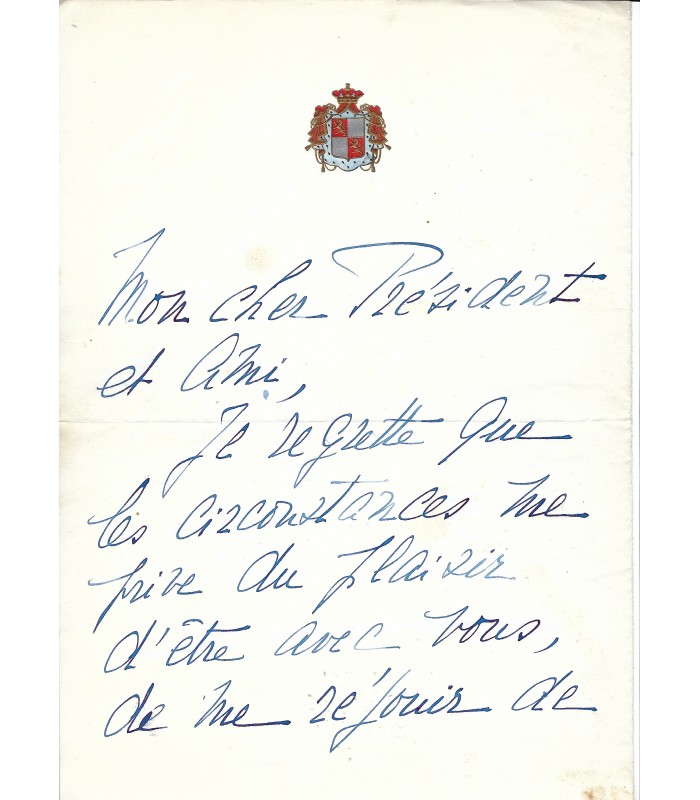 Mon cher Président
et Ami,
Je regrette que
les circonstances me
prive du plaisir
d'être avec vous,
de me réjouir de